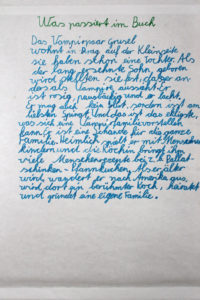 Was passiert im Buch
Das Vampirpaar Grusel
wohnt in Prag auf der Kleinseite
sie haben schon eine Tochter. Als
der lang ersehnte Sohn, geboren
wird stellen sie fest, daß er an-
ders als Vampire aussieht, er
ist rosig, pausbäckig und er lacht.
Er mag auch kein Blut, sondern isst am
liebsten Spinat. Und das ist das ekligste,
was sich eine Vampirfamilie vorstellen
kann. Er ist eine Schande für die ganze
Familie. Heimlich spielt er mit Menschen
kindern und die Köchin bringt ihm
viele Menschenrezepte bei z.B. Pallat-
schinken - Pfannkuchen. Als er älter
wird, wandert er nach Amerika aus,
wird dort ein berühmter Koch, heiratet
und gründet eine eigene Familie.